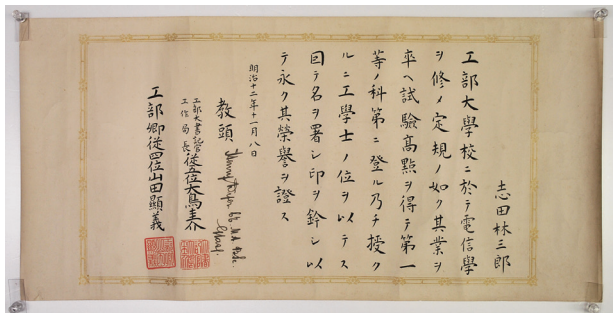 志田林三郎
工部大學校ニ於テ電信學
ヲ修メ定規ノ如ク其業ヲ
卒ヘ試驗高點ヲ得テ第一
等ノ科第ニ登ル乃チ授ク
ルニ工學士ノ位ヲ以テス
因テ名ヲ署シ印ヲ鈐シ以
テ永ク其榮譽ヲ證ス
明治十二年十一月八日
教頭
工部大書記官
工作局長 從五位大鳥圭介
工部卿從四位山田顯義